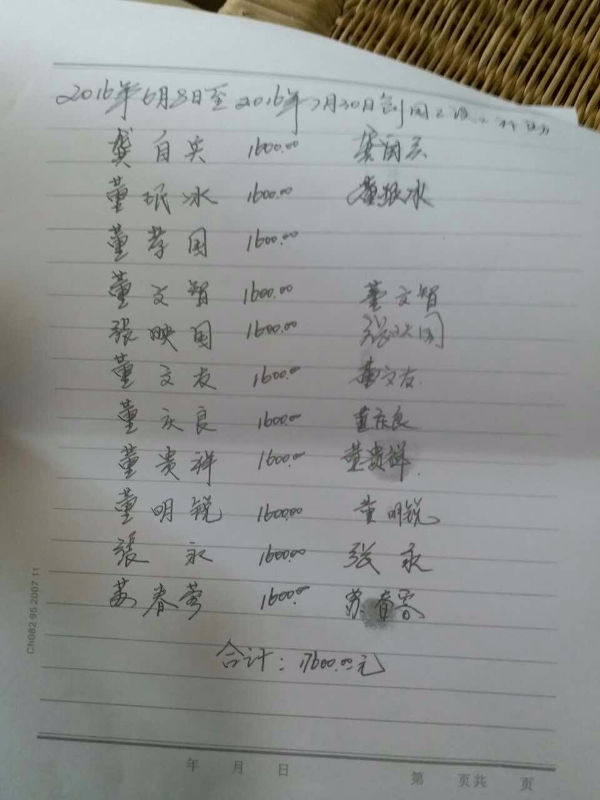 2016年6月8日至2016年7月30日创园工
龚自兴 1600.00
董珉冰 1600.00 董珉冰
董孝国 1600.00
董文智 1600.00 董文智
张映国 1600.00 张映国
董文友 1600.00 董文友
董庆良 1600.00 董庆良
董贵祥 1600.00 董贵祥
董明锐 1600.00 董明锐
張永 1600.00 张永
苏春蓉 1600.00 苏春蓉
合计：17600.00元
年 月 日 第 页共 页
Ch082 95 2007 11